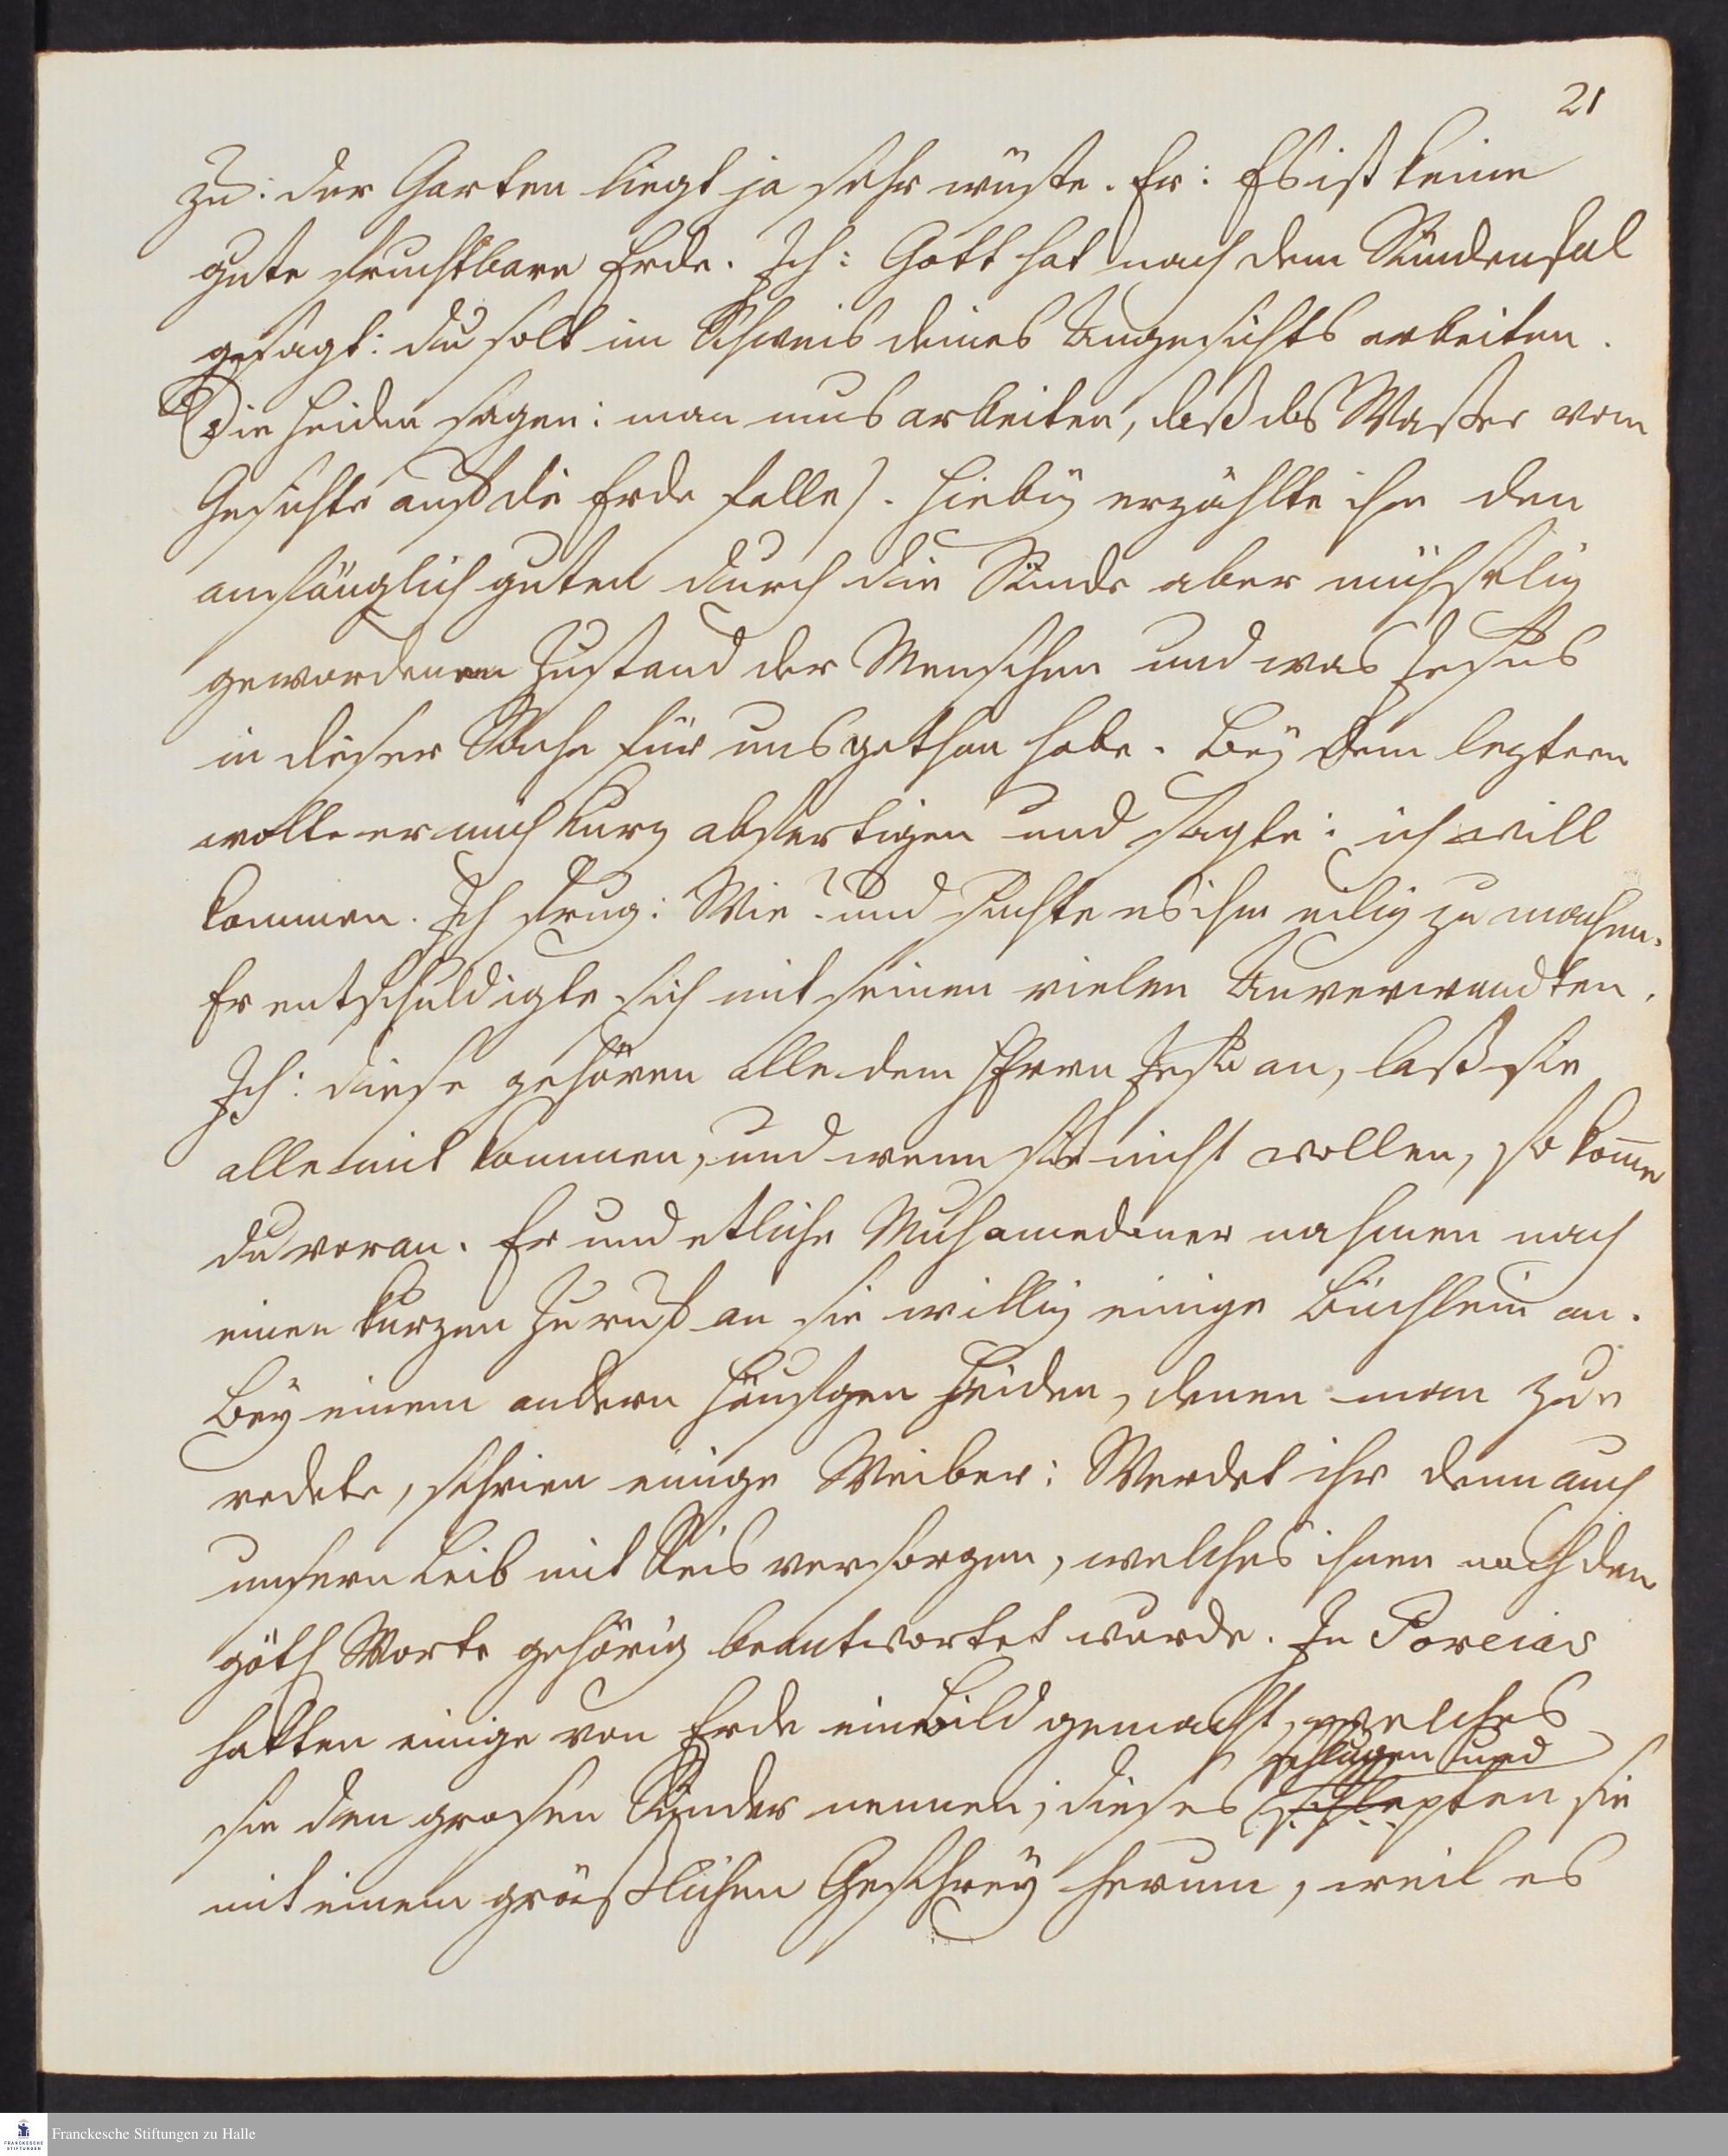 21
zu: der Garten liegt ja sehr wüste. Er: Es ist keine
gute fruchtbare Erde. Ich: Gott hat nach dem Sündenfal
gesagt: du solt im Schweis deines Angesichts arbeiten.
(Die Heiden sagen: man mus arbeiten, daß das Waßer vom
Gesichte auf die Erde falle). Hiebey erzählte ihm den
anfänglich guten durch die Sünde aber mühselig
gewordenen Zustand der Menschen und was Jesus
in dieser Sache für uns gethan habe. Bey dem leztern
wolte er mich kurz abfertigen und sagte: ich will
kommen. Ich frug: Wie? und suchte es ihm eilig zu machen.
Er entschuldigte sich mit seinen vielen Anverwandten.
Ich: diese gehören alle dem HErrn Jesu an, laß sie
alle mit kommen, und wenn sie nicht wollen, so kom̄e
du voran. Er und etliche Muhamedaner nahmen nach
einen kurzen Zuruf an sie willig einige Büchlein an.
Bey einem andern Häufgen Heiden, denen man zu
redete, schrien einige Weiber: Werdet ihr denn auch
unsern Leib mit Reis versorgen, welches ihnen nach dem
götl Worte gehörig beantwortet wurde. In Poreiar
hatten einige von Erde ein Bild gemacht, welches
schlugen und
sie den grosen Sünder nennen; dieses schlepten sie
mit einem gräßlichen Geschrey herum, weil es
Franckesche Stiftungen zu Halle
FRANCKESCHE
STIFTUNGEN